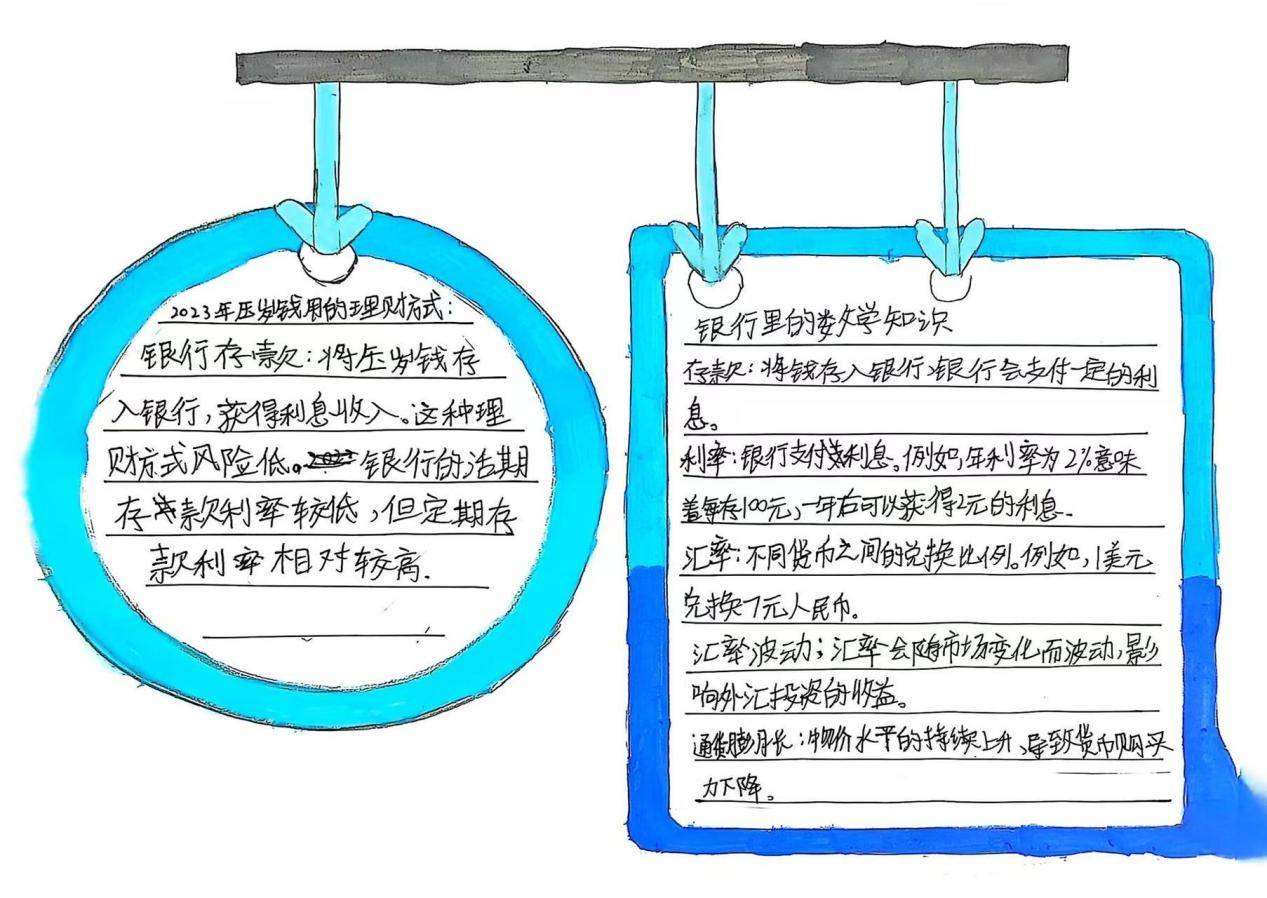 2023年压岁钱用的理财方式：
银行存款：将压岁钱存
入银行，获得利息收入。这种理
财方式风险低。银行的活期
存款利率较低，但定期存
款利率相对较高.
银行里的数学知识
存款：将钱存入银行，银行会支付一定的利
息。
利率：银行支付利息。例如，年利率为2%意味
着每存100元，一年后可以获得2元的利息.
汇率：不同货币之间的兑换比例。例如，1美元
兑换7元人民币。
汇率波动；汇率会随市场变化而波动，影
响外汇投资的收益。
通货膨胀：物价水平的持续上升，导致货币购买
力下降。